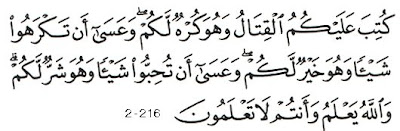 كُتِبَ عَلَيْكُمُ ٱلْقِتَالُ وَهُوَكُرْهٌ لَّكُمْ ۖ وَعَسَىٰٓ أَن تَكْرَهُوا۟
شَيْـًٔا وَهُوَ خَيْرٌ لَّكُمْ ۖ وَعَسَىٰٓ أَن تُحِبُّوا۟ شَيْـًٔا وَهُوَ شَرٌّ لَّكُمْ ۗ
وَٱللَّهُ يَعْلَمُ وَأَنتُمْ لَا تَعْلَمُونَ 2-216